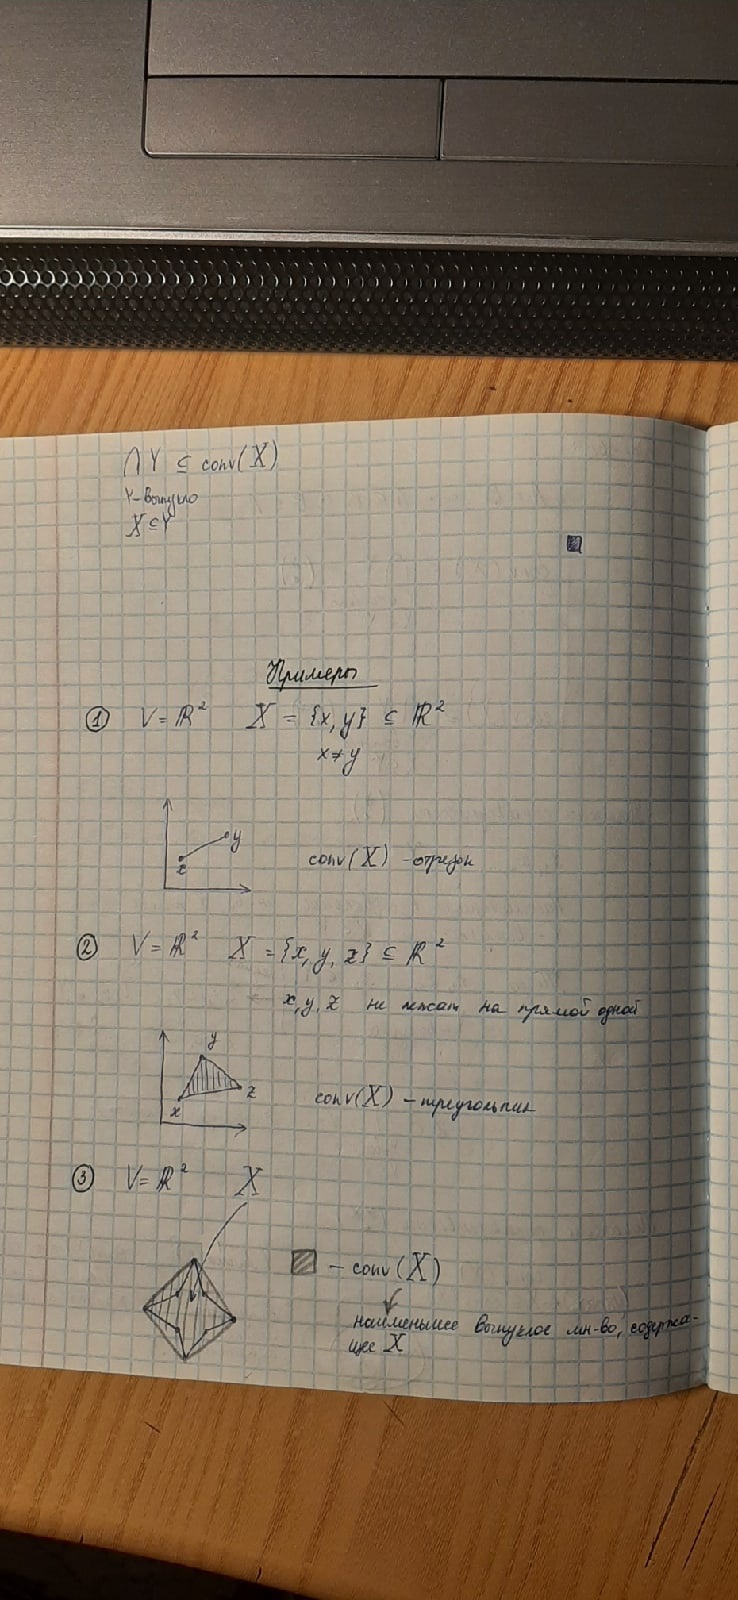 ∩ Y ⊆ conv(X)
Y-выпукло
X ⊆ Y
Примеры
① V = ℝ² X = {x, y} ⊆ ℝ²
x ≠ y
y
x
conv(X) - отрезок
② V = ℝ² X = {x, y, z} ⊆ ℝ²
x, y, z не лежат на прямой одной
y
x z
conv(X) - треугольник
③ V = ℝ² X
- conv(X)
наименьшее выпуклое мн-во, содержа-
щее X